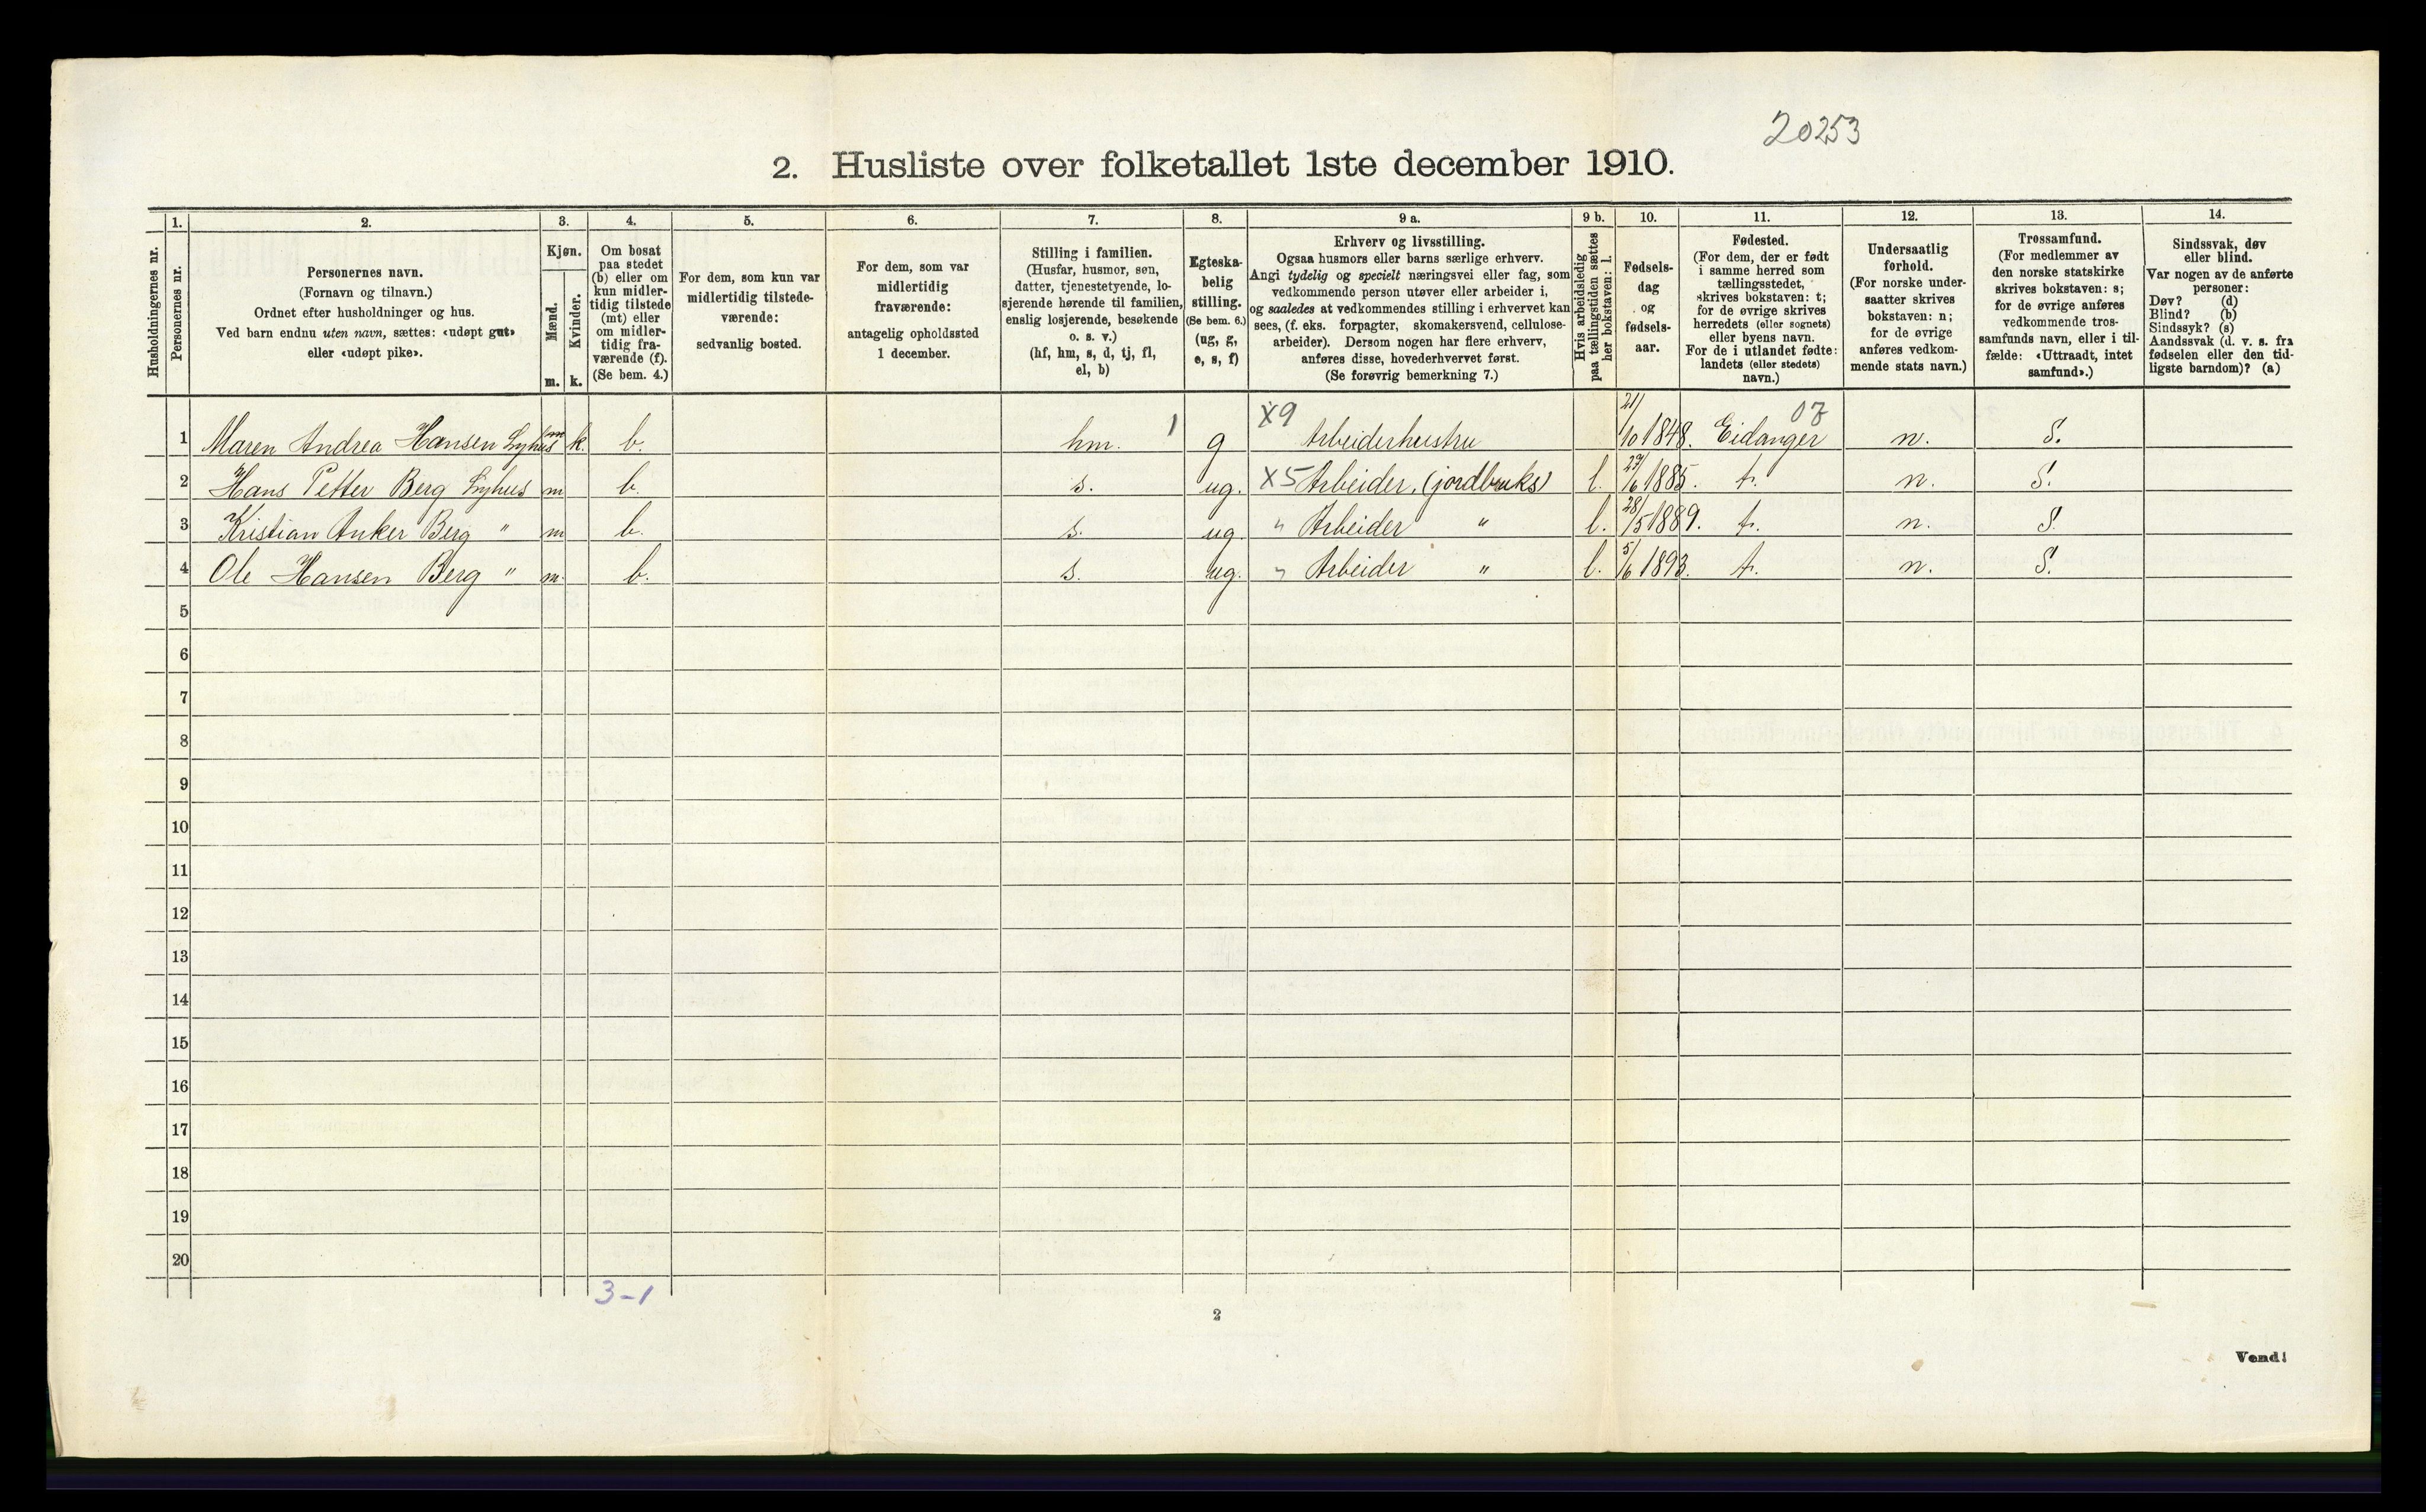 20253
2. Husliste over folketallet 1ste december 1910.
Husholdningernes nr.
1.
Personernes nr.
2.
Personernes navn.
(Fornavn og tilnavn.)
Ordnet efter husholdninger og hus.
Ved barn endnu uten navn, sættes: «udøpt gut»
eller «udøpt pike».
3.
Kjøn.
Mænd.
Kvinder.
m. k.
4.
Om bosat
paa stedet
(b) eller om
kun midler-
tidig tilstede
(mt) eller
om midler-
tidig fra-
værende (f).
(Se bem. 4.)
5.
For dem, som kun var
midlertidig tilstede-
værende:
sedvanlig bosted.
6.
For dem, som var
midlertidig
fraværende:
antagelig opholdssted
1 december.
7.
Stilling i familien.
(Husfar, husmor, søn,
datter, tjenestetyende, lo-
sjerende hørende til familien,
enslig losjerende, besøkende
o. s. v.)
(hf, hm, s, d, tj, fl,
el, b)
8.
Egteska-
belig
stilling.
(Se bem. 6.)
(ug, g,
e, s, f)
9 a.
Erhverv og livsstilling.
Ogsaa husmors eller barns særlige erhverv.
Angi tydelig og specielt næringsvei eller fag, som
vedkommende person utøver eller arbeider i,
og saaledes at vedkommendes stilling i erhvervet kan
sees, (f. eks. forpagter, skomakersvend, cellulose-
arbeider). Dersom nogen har flere erhverv,
anføres disse, hovederhvervet først.
(Se forøvrig bemerkning 7.)
9 b.
Hvis arbeidsledig
paa tællingstiden sættes
her bokstaven: l.
10.
Fødsels-
dag
og
fødsels-
aar.
11.
Fødested.
(For dem, der er født
i samme herred som
tællingsstedet,
skrives bokstaven: t;
for de øvrige skrives
herredets (eller sognets)
eller byens navn.
For de i utlandet fødte:
landets (eller stedets)
navn.)
12.
Undersaatlig
forhold.
(For norske under-
saatter skrives
bokstaven: n;
for de øvrige
anføres vedkom-
mende stats navn.)
13.
Trossamfund.
(For medlemmer av
den norske statskirke
skrives bokstaven: s;
for de øvrige anføres
vedkommende tros-
samfunds navn, eller i til-
fælde: «Uttraadt, intet
samfund».)
14.
Sindssvak, døv
eller blind.
Var nogen av de anførte
personer:
Døv? (d)
Blind? (b)
Sindssyk? (s)
Aandssvak (d. v. s. fra
fødselen eller den tid-
ligste barndom)? (a)
1 Maren Andrea Hansen Lyhus k. b. hm. 1 g X9 Arbeiderhustru 21/10 1848. Eidanger 07 n. S.
2 Hans Petter Berg Lyhus m b. s. ug. X5 Arbeider, (jordbruks) l. 27/6 1885. t. n. S.
3 Kristian Anker Berg " m b. s. ug. " Arbeider " l. 28/5 1889. t. n. S.
4 Ole Hansen Berg " m. b. s. ug. " Arbeider " l. 5/6 1893. t. n. S.
5
6
7
8
9
10
11
12
13
14
15
16
17
18
19
20
3-1
2
Vend!